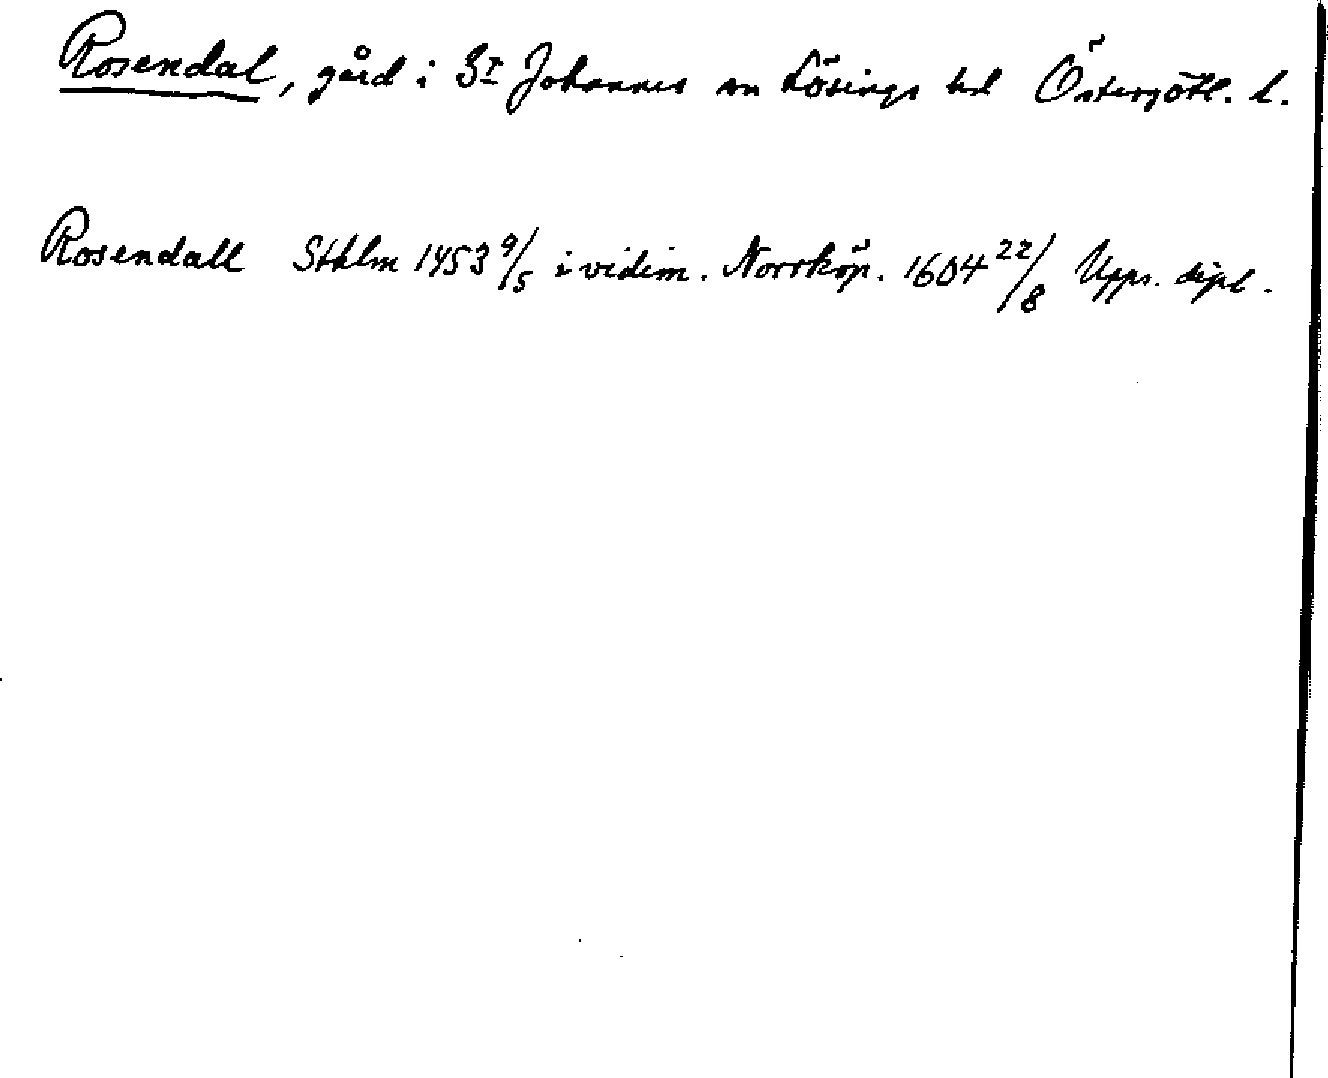 Rosendal, gård i S:t Johannes sn Lösings hd Östergötl. l.
Rosendall Sthlm 1453 9/5 i vidim. Norrköp. 1604 22/8 Upps. dipl.